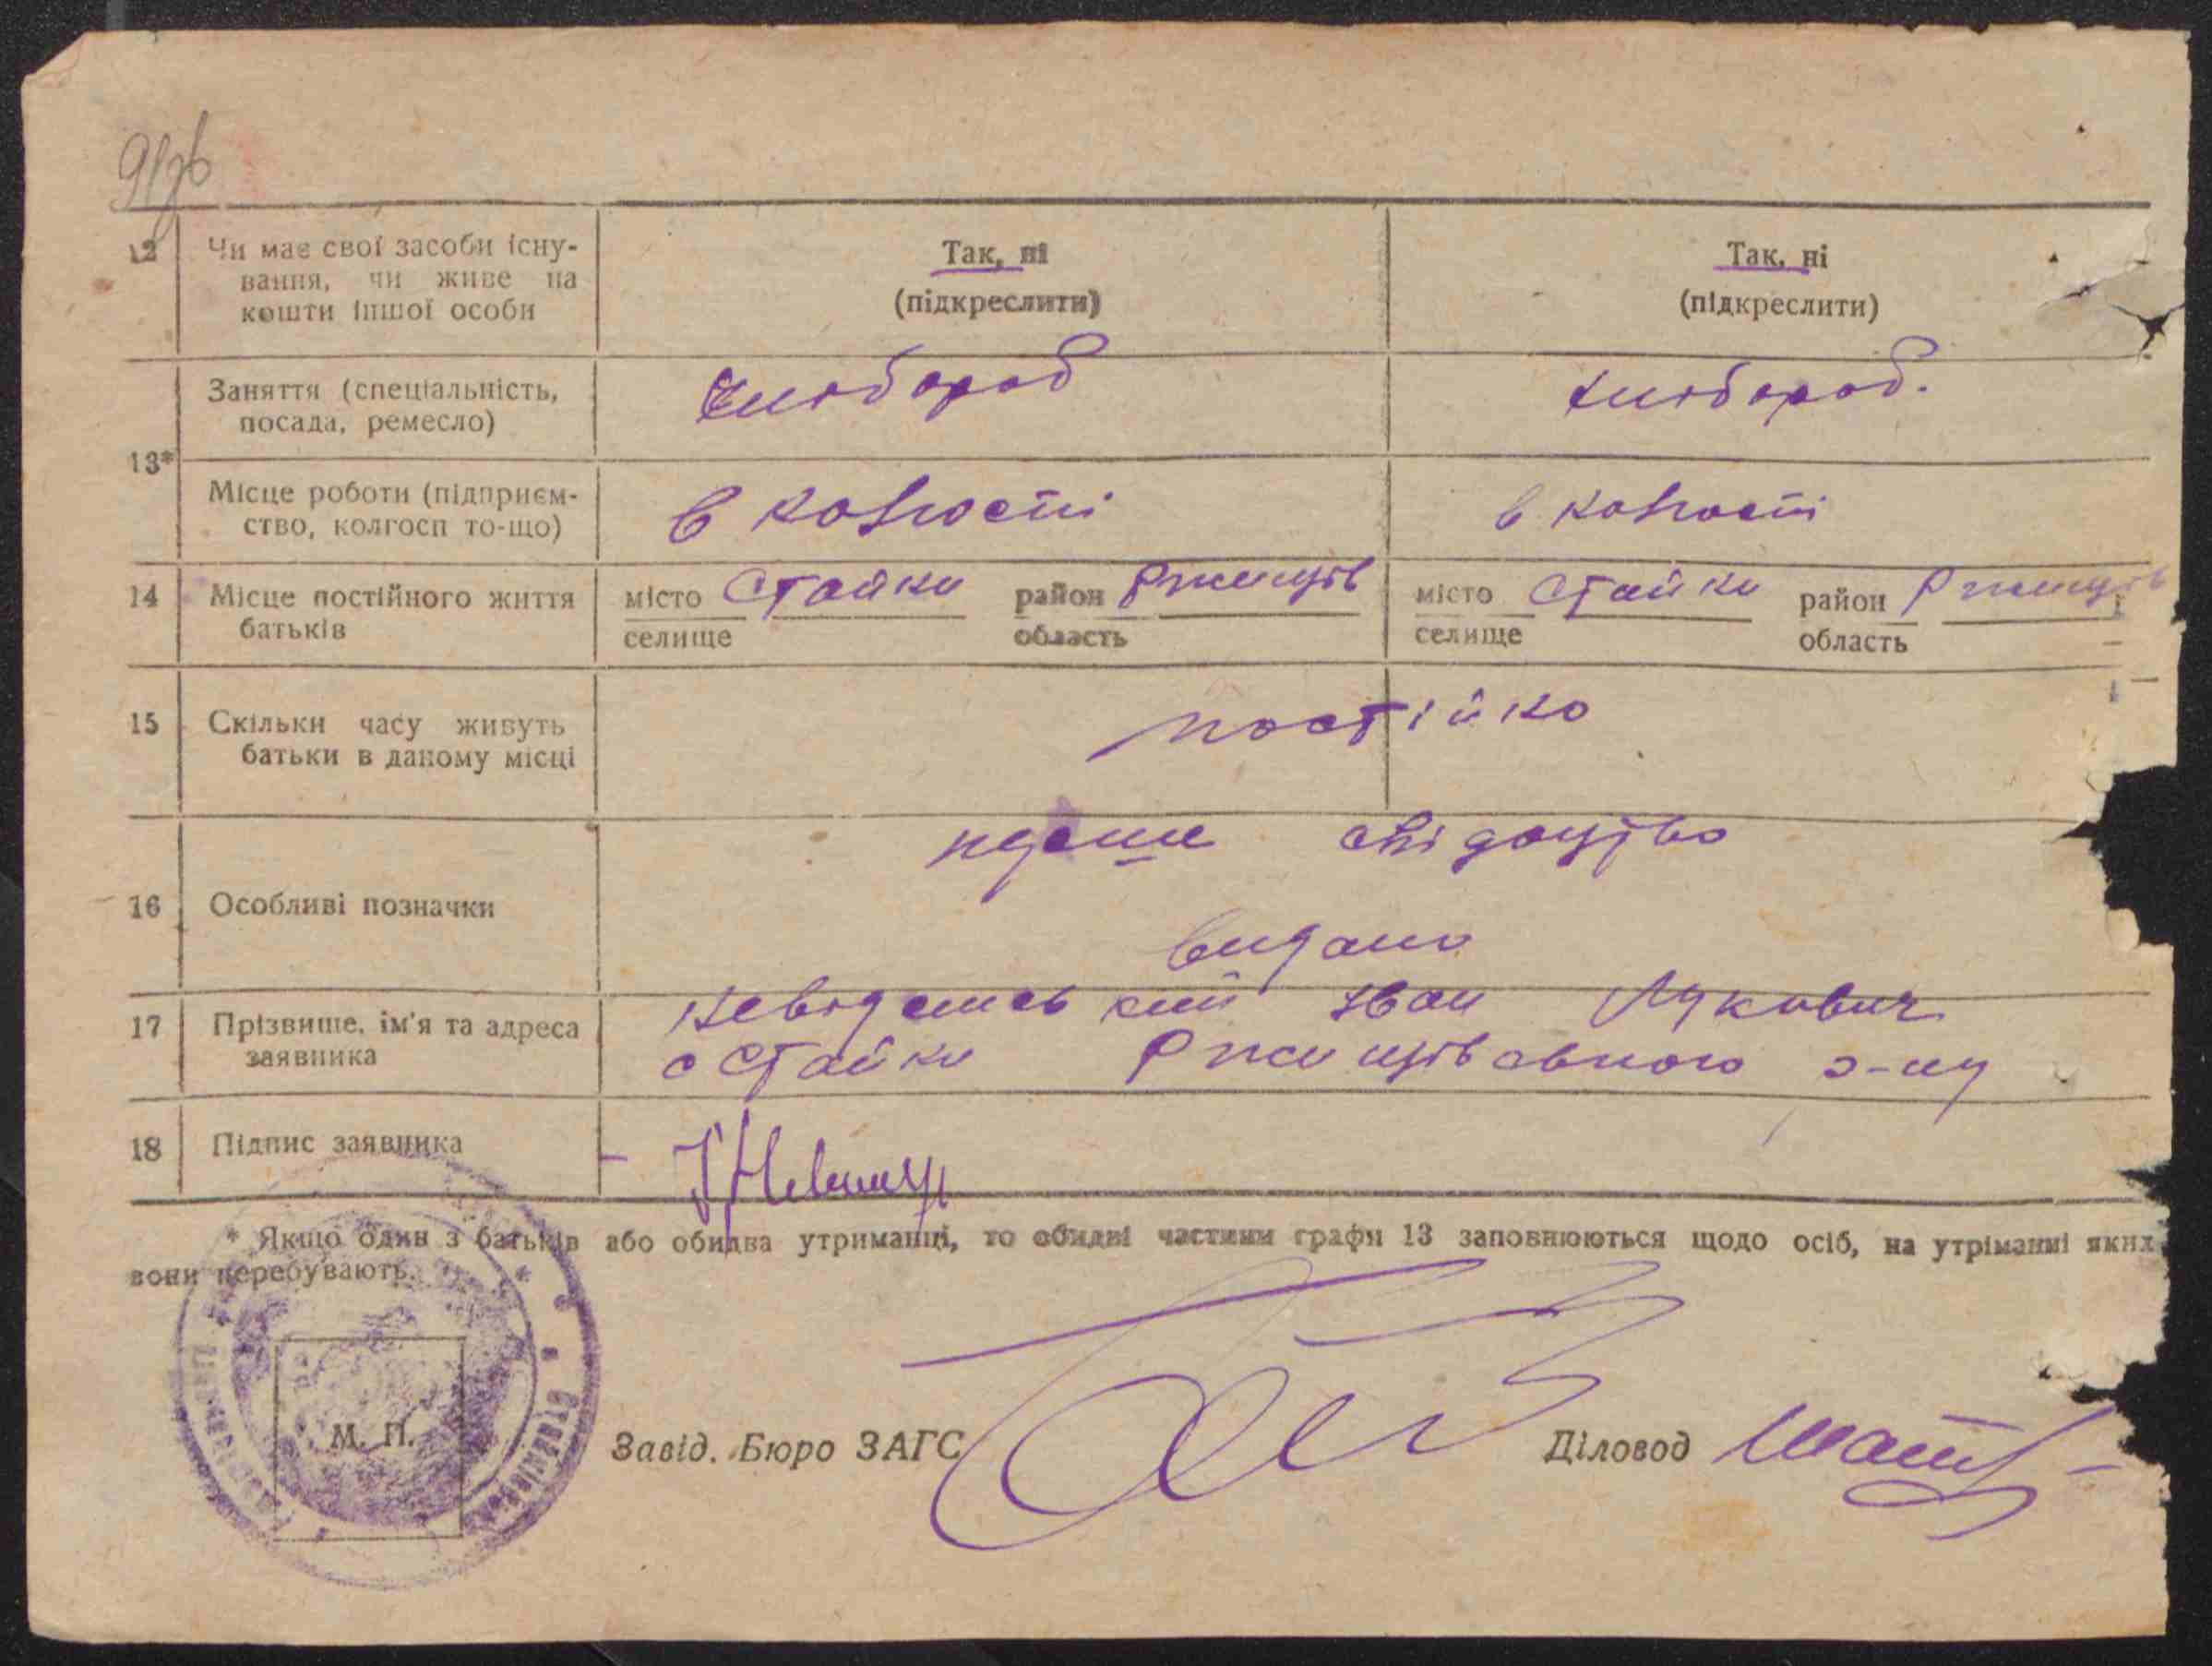 12 Чи має свої засоби існу-
вання, чи живе на
кошти іншої особи
Так, ні
(підкреслити)
Так, ні
(підкреслити)
13*
Заняття (спеціальність,
посада, ремесло)
хлібороб
хлібороб.
Місце роботи (підприєм-
ство, колгосп то-що)
в колгоспі
в колгоспі
14 Місце постійного життя
батьків
місто Стайки район Ржищів
селище область
місто Стайки район Ржищів
селище область
15 Скільки часу живуть
батьки в даному місці
постійно
16 Особливі позначки
перше свідоцтво
видано
17 Прізвище, ім'я та адреса
заявника
Іван Лукович
с Стайки Ржищівського р-ну
18 Підпис заявника
* Якщо один з батьків або обидва утриманці, то обидві частини графи 13 заповнюються щодо осіб, на утріманні яких
вони перебувають.
М. П.
Завід. Бюро ЗАГС
Діловод